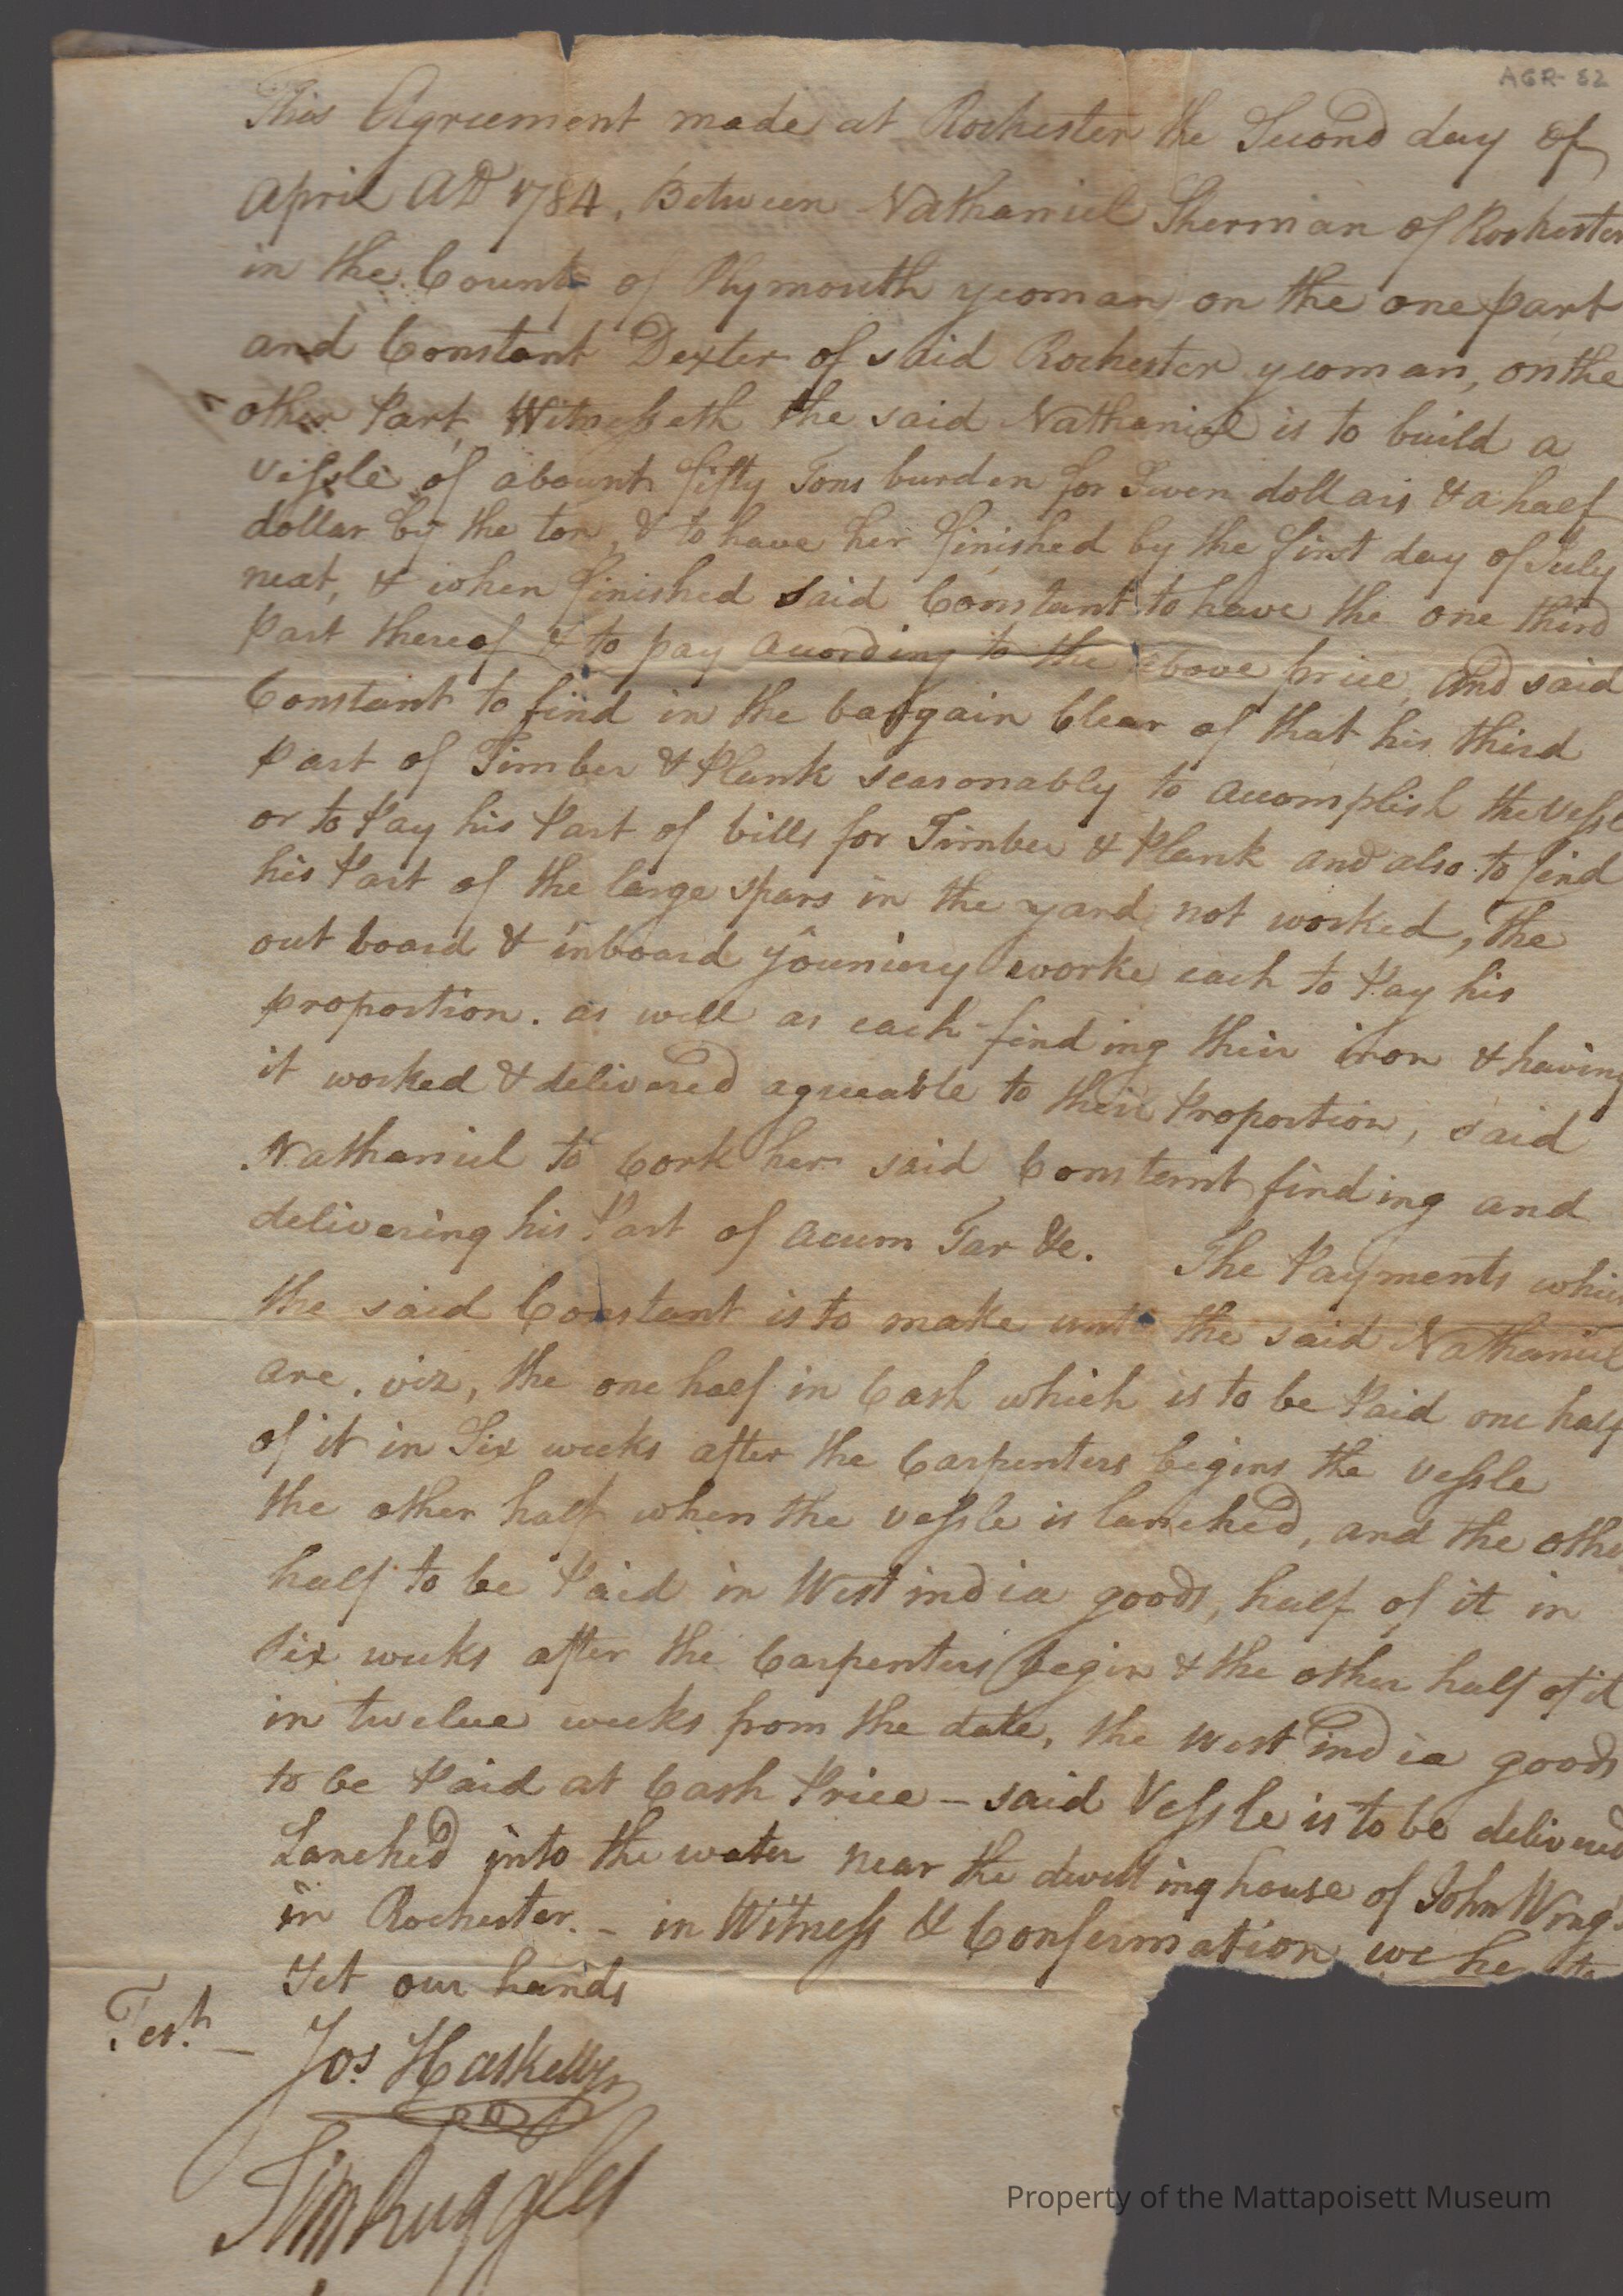 AGR-82
This Agreement made at Rochester the Second day of
April AD 1784, Between Nathaniel Sherman of Rochester
in the County of Plymouth yeoman on the one part
and Constant Dexter of said Rochester yeoman, on the
other Part, Witnesseth the said Nathaniel is to build a
vessle of abount fifty Tons burden for Seven dollars & a half
dollar by the ton, & to have her finished by the first day of July
next, & when finished said Constant to have the one third
part thereof & to pay acording to the above price, and said
Constant to find in the bargain Clear of that his third
part of Timber & Plank seasonably to acomplish the Vessle
or to Pay his Part of bills for Timber & Plank and also to find
his Part of the large spars in the yard not worked, The
out board & inboard worke each to Pay his
proportion. as well as each finding their iron & having
it worked & delivered agreeable to their Proportion, said
Nathaniel to Cork her said Constant finding and
delivering his Part of acum Tar &c. The Payments which
the said Constant is to make unto the said Nathaniel
are. viz, the one half in Cash which is to be Paid one half
of it in Six weeks after the Carpenters begins the vessle
the other half when the vessle is lanched, and the other
half to be Paid in West india goods, half of it in
six weeks after the Carpenters begin & the other half of it
in twelve weeks from the date, the West india goods
to be Paid at Cash Price – said Vessle is to be delivered
Lanched into the water near the dwelling house of John Wing
in Rochester. – in Witness & Confermation we
Set our hands
Test. –
Jos Haskell
Tim Ruggles
Property of the Mattapoisett Museum